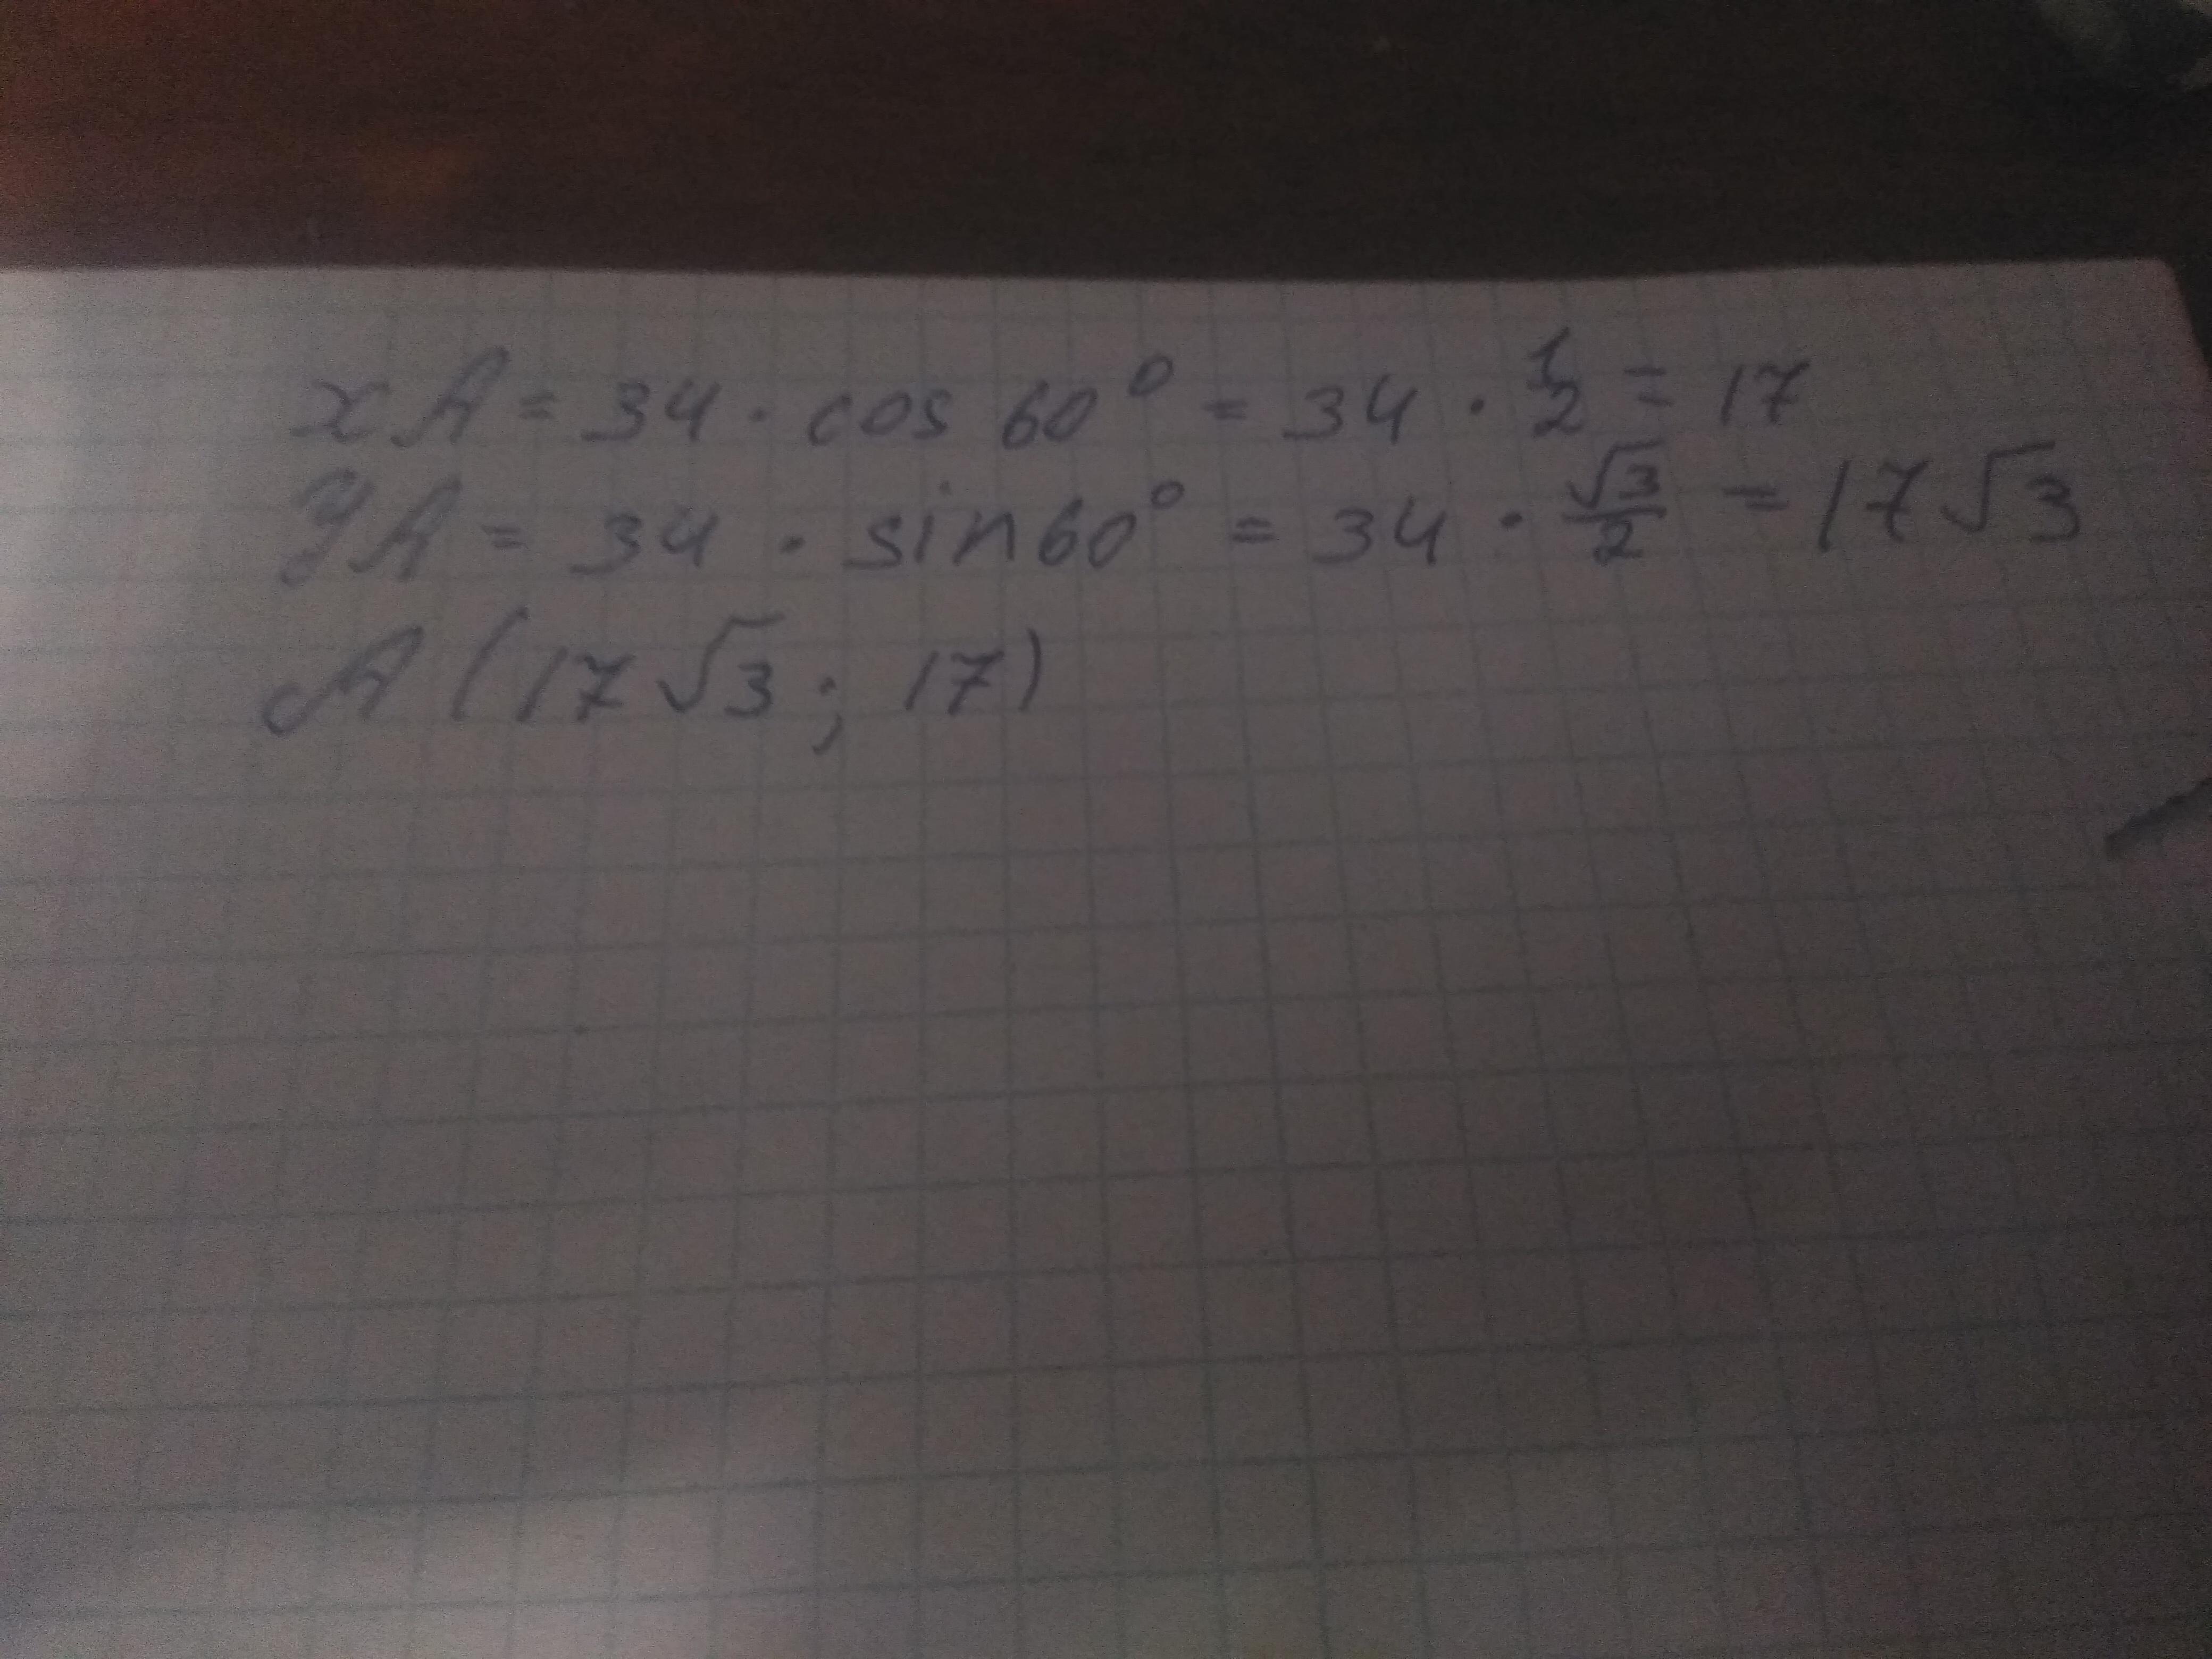 xA = 34 · cos 60° = 34 · 1/2 = 17
yA = 34 · sin 60° = 34 · √3/2 = 17√3
A (17√3; 17)